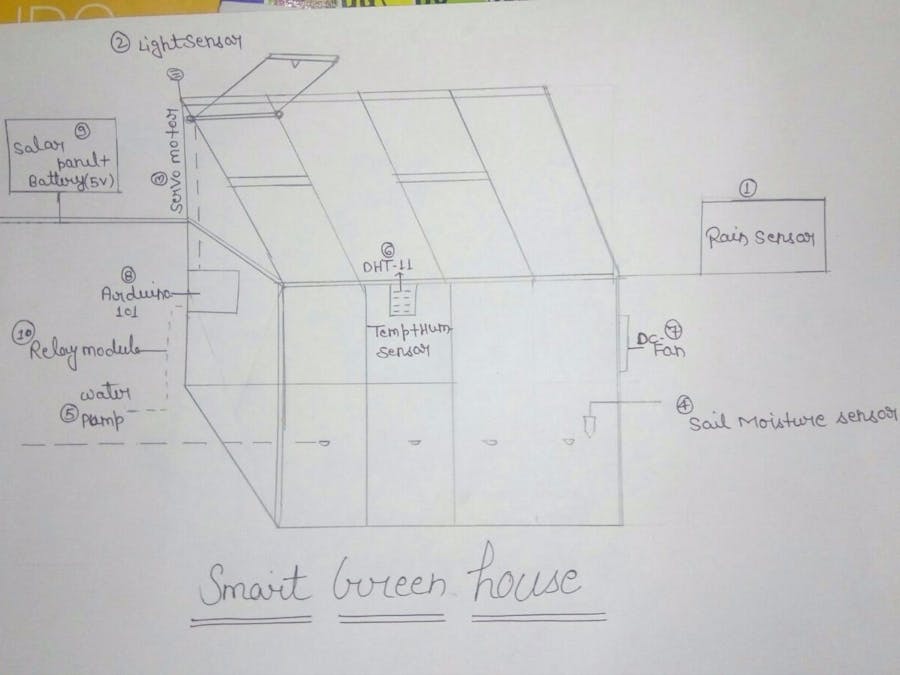 ② Light Sensor
⑨
Salar
panel+
Battery(5V)
③ Servo motor
①
Rain Sensor
⑥
DHT-11
Temp+Hum
sensor
⑧
Arduino
101
⑩
Relay module
DC- ⑦
Fan
water
⑤ Pamp
④
Sail Moisture sensor
Smart Green house